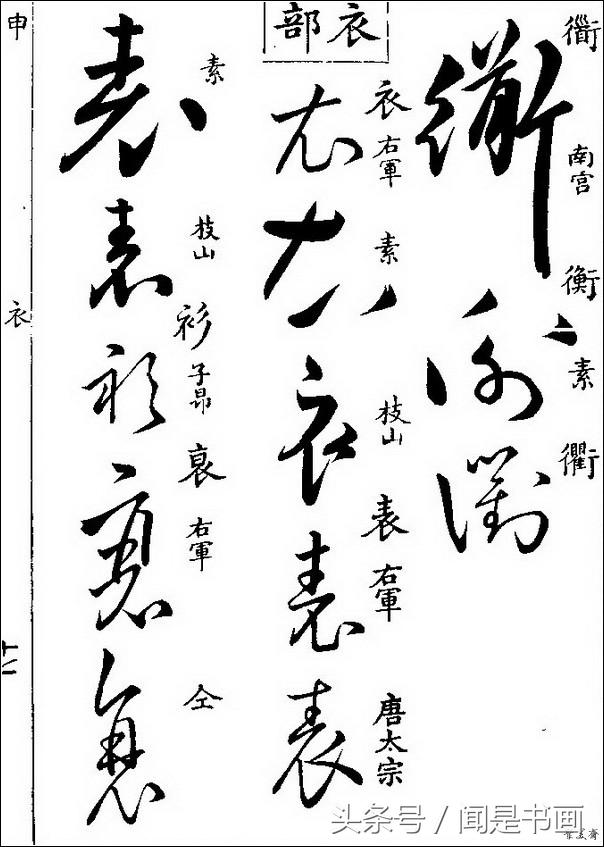 南宫
衡
素
衢
衡
衢
衣部
衣 右軍
素
枝山
表 右軍
唐太宗
衣
衣
衣
表
表
素
枝山
衫 子昂
右軍
仝
表
表
衫
申
衣
头条号 / 闻是书画